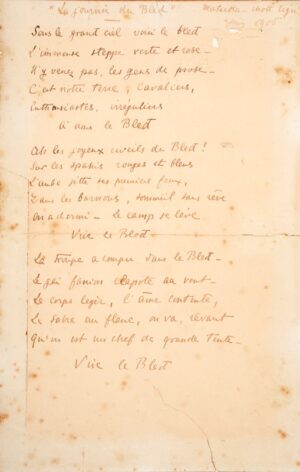 "La Journée du Bled"
Matarka - chott Tigri
1906
Sous le grand ciel voici le bled
L'immense steppe verte et rose -
N'y venez pas, les gens de prose -
C'est notre terre, Cavaliers,
Enthousiastes, irréguliers
À nous le Bled
Ah les joyeux éveils du Bled !
Sur les spahis rouges et bleus
L'aube jette ses premiers feux,
Dans les burnous, sommeil sans rêve
On a dormi - Le camp se lève
Vive le Bled -
La troupe a rompu dans le Bled -
Le gai fanion clapote au vent -
Le corps léger, l'âme contente,
Le sabre au flanc, on va, rêvant
Qu'on est un chef de grande tente -
Vive le Bled